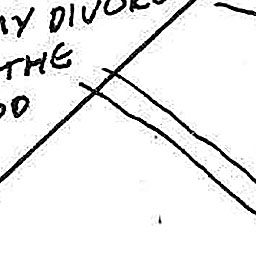 MY DIVORC
THE
OD